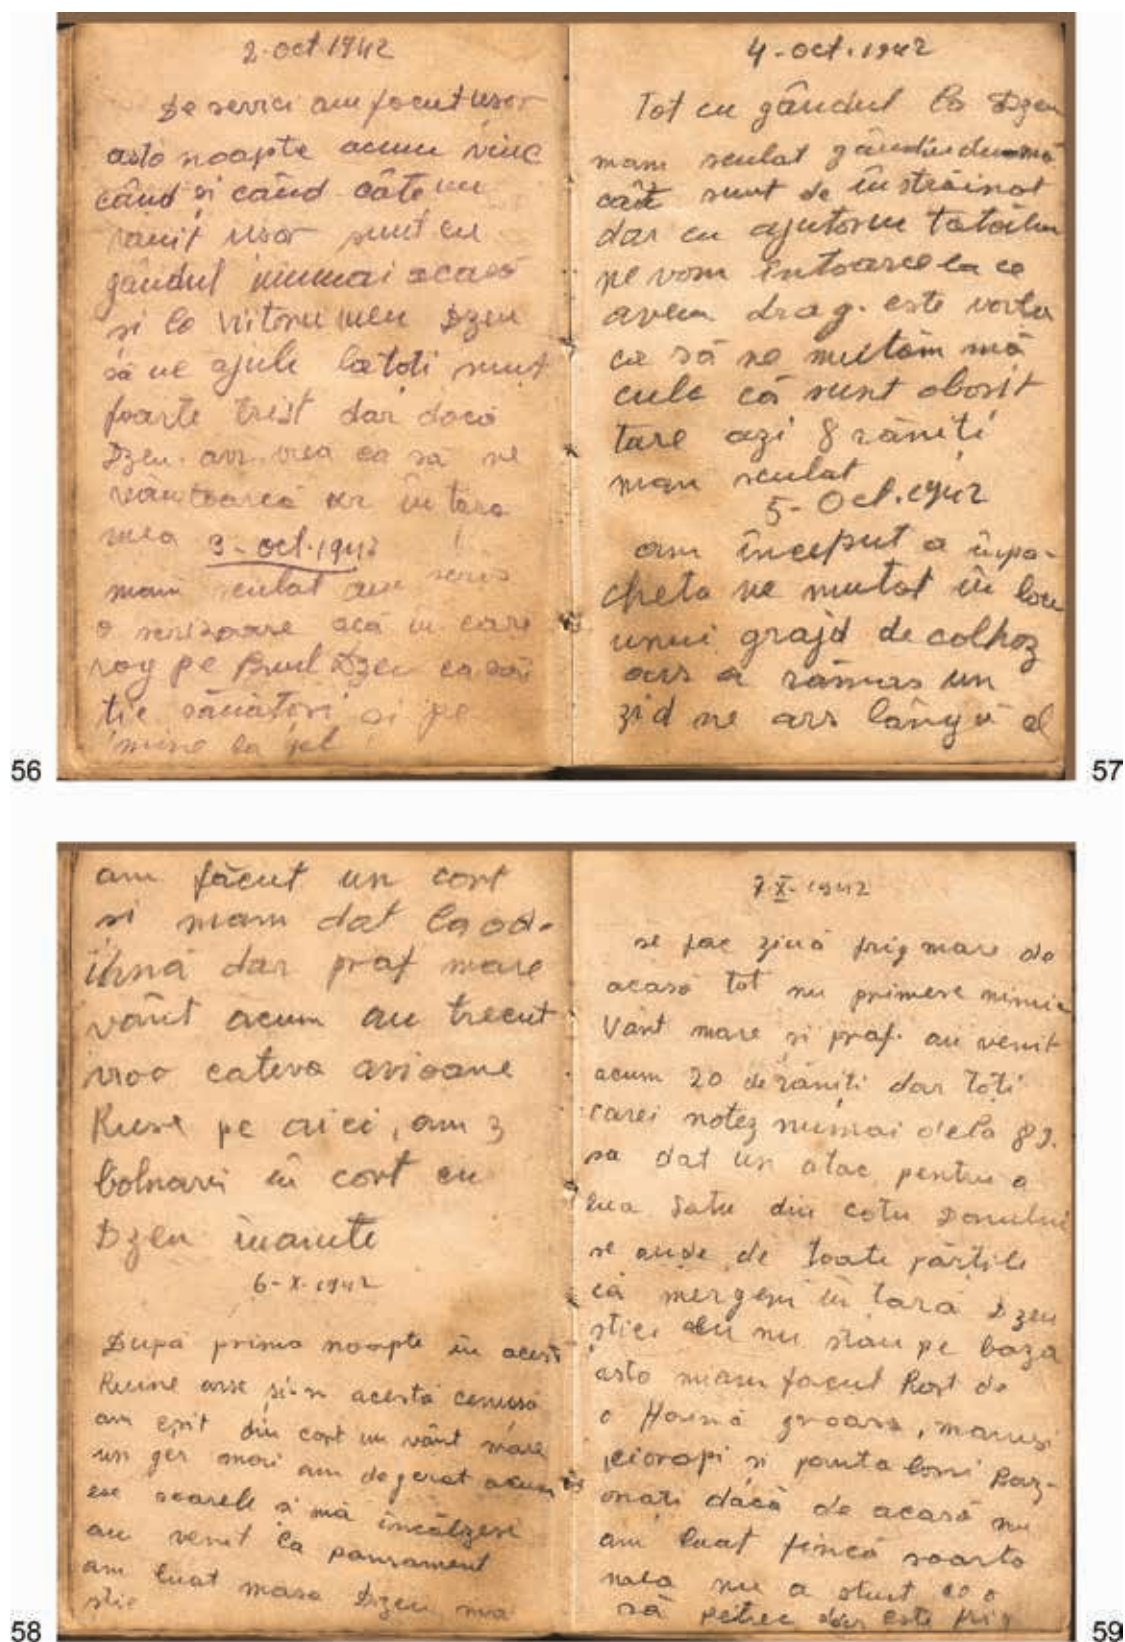 2-oct 1942
De servici am facut usor
asta noapte acum vine
când si când câte un
ranit usor sunt cu
gândul numai acasă
si la viitoru meu Dzeu
să ne ajute la toti sunt
foarte trist dar dacă
Dzeu. vrea ca să ne
în tara
mea 3-oct.1942
mam sculat am scris
o scrisoare acă in care
rog pe Bunul Dzeu ca să
fie sănătosi si pe
mine la fel
56
4-oct.1942
Tot cu gândul la Dzeu
mam sculat gândindumă
cât sunt de înstrăinat
dar cu ajutorul tatălui
ne vom întoarce la ce
avem drag. este vorba
ca să ne mutăm mă
culc că sunt obosit
tare azi 8 răniti
mam sculat
5-Oct.1942
am început a împa-
cheta ne mutat în locu
unui grajd de colhoz
ars a rămas un
zid ne ars lângă el
57
am făcut un cort
si mam dat la od-
ihnă dar praf mare
vânt acum au trecut
vroo cateva avioane
Ruse pe aici, am 3
bolnavi în cort cu
Dzeu inainte
6-X-1942
După prima noapte în acest
Ruine arse si-n acestă cenusă
am esit din cort un vânt mare
un ger mai am degerat acum
ese soarele si mă încălzesc
au venit la pansament
am luat masa Dzeu
stie
58
7-X-1942
se fac ziuă frig mare de
acasă tot nu primesc nimic
Vânt mare si praf. au venit
acum 20 de răniti dar toti
carei notez numai dela 89.
sa dat un atac pentru a
lua satu din cotu Donului
se aude de toate părtile
că mergem in tară Dzeu
stie nu stau pe baza
asta miam facut Rost de
o Haină groasă, manusi
ciorapi si
dacă de acasă nu
am luat fincă soarta
mea nu a stiut co o
să petrec dar este frig
59